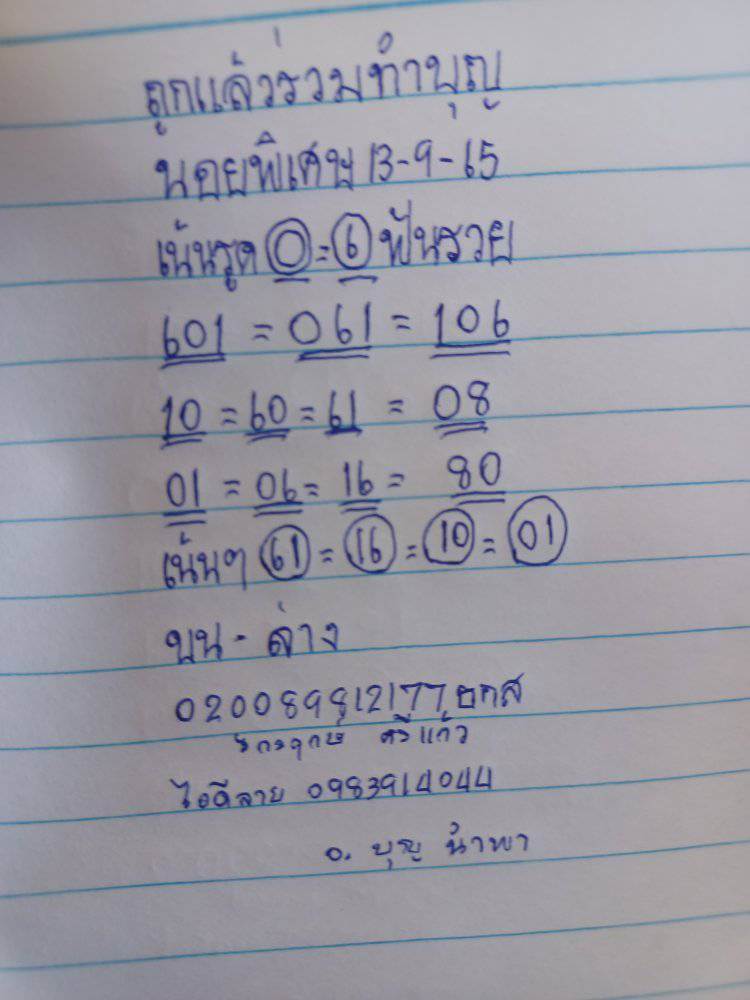 ถูกแล้วร่วมทำบุญ
นอยพิเศษ 13-9-65
เน้นรูด 0 = 6 ฟันรวย
601 = 061 = 106
10 = 60 = 61 = 08
01 = 06 = 16 = 80
เน้นๆ 61 = 16 = 10 = 01
บน - ล่าง
020089812177 ธกส
แก้ว
ไอดีลาย 0983914044
อ. บุญ นำพา